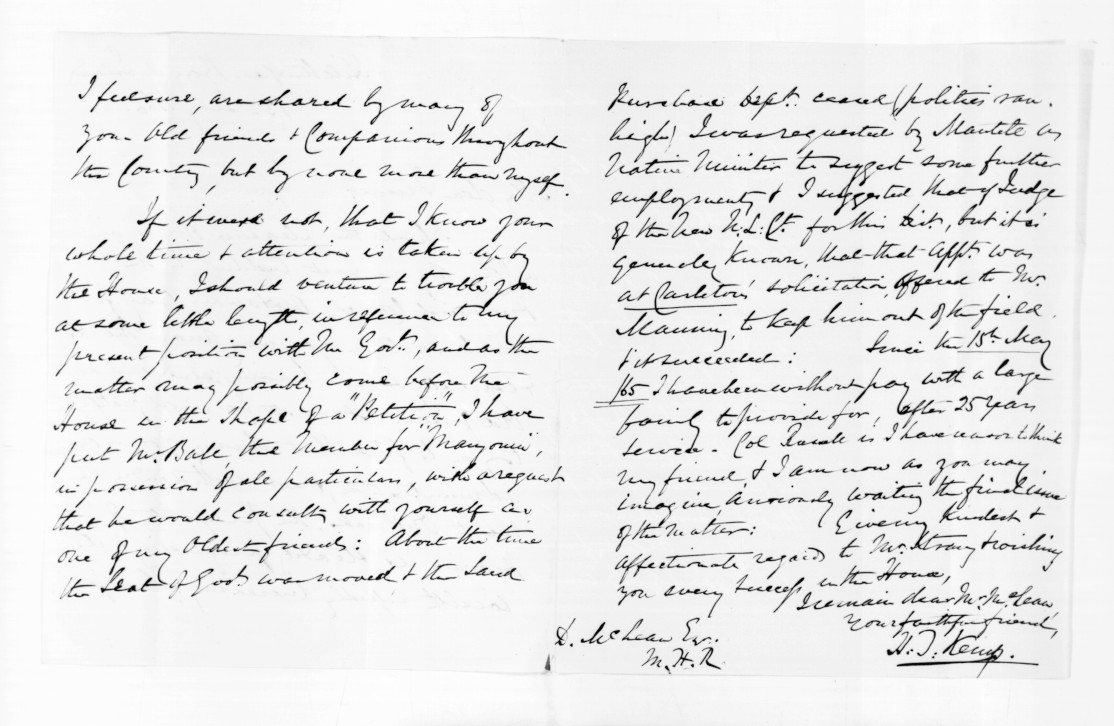 I feel sure, are shared by many of
your Old friends & Companions throughout
the Country, but by none more than myself.
If it were not, that I know your
whole time & attention is taken up by
the House, I should venture to trouble you
at some little length, in reference to my
present position with the Govt., and as the
matter may possibly come before the
House in the shape of a "Petition", I have
put Mr. Ball the Member for Mangonui,
in possession of all particulars, with a request
that he would consult with yourself as
one of my Oldest friends: About the time
the Seat of Govt. was moved & the Land
Purchase Dept. ceased (politics ran
high) I was requested by Mantell as
Native Minister to suggest some further
employment, & I suggested that of Judge
of the New N. L. Ct. for this Dis., but it is
generally known, that that Appt. was
at Carleton's solicitation, offered to Mr.
Manning, to keep him out of the field
& it succeeded: Since the 15th May
/65 I have been without pay with a large
family to provide for, after 25 years
service. Col Russell is I have reason to think
my friend & I am now as you may
imagine, anxiously waiting the final issue
of the matter: Give my kindest &
affectionate regards to Mrs. Strang & wishing
you every success in the House,
I remain dear Mr. McLean,
Your faithful friend,
H. T. Kemp.
D. McLean Esq.
M. H. R.